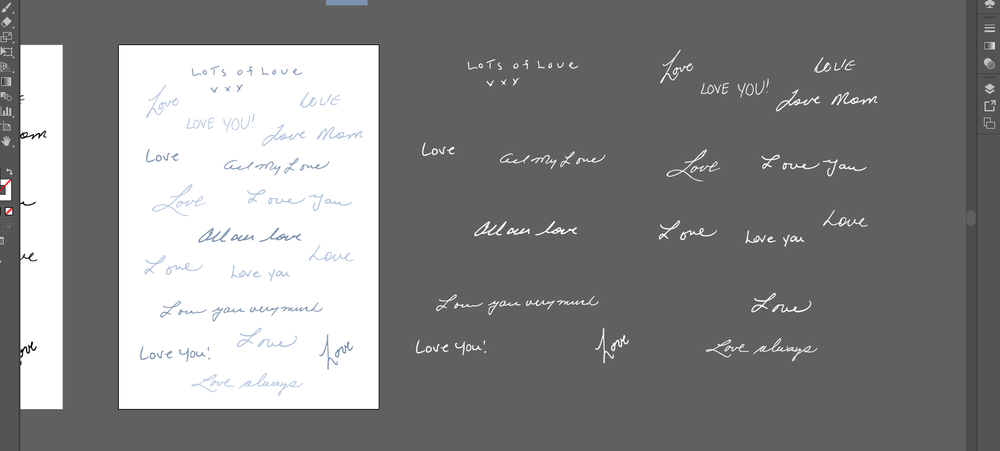 LoTs of Love
v x y
Love
LOVE
LOVE YOU!
Love Mom
Love
All My Love
Love
Love You
All our love
Love
Love you
Love
Love you very much
Love You!
Love
Love
Love always
LoTs of Love
v x y
Love
LOVE
LOVE YOU!
Love Mom
Love
All My Love
Love
Love You
All our love
Love
Love you
Love
Love you very much
Love
Love You!
Love
Love always